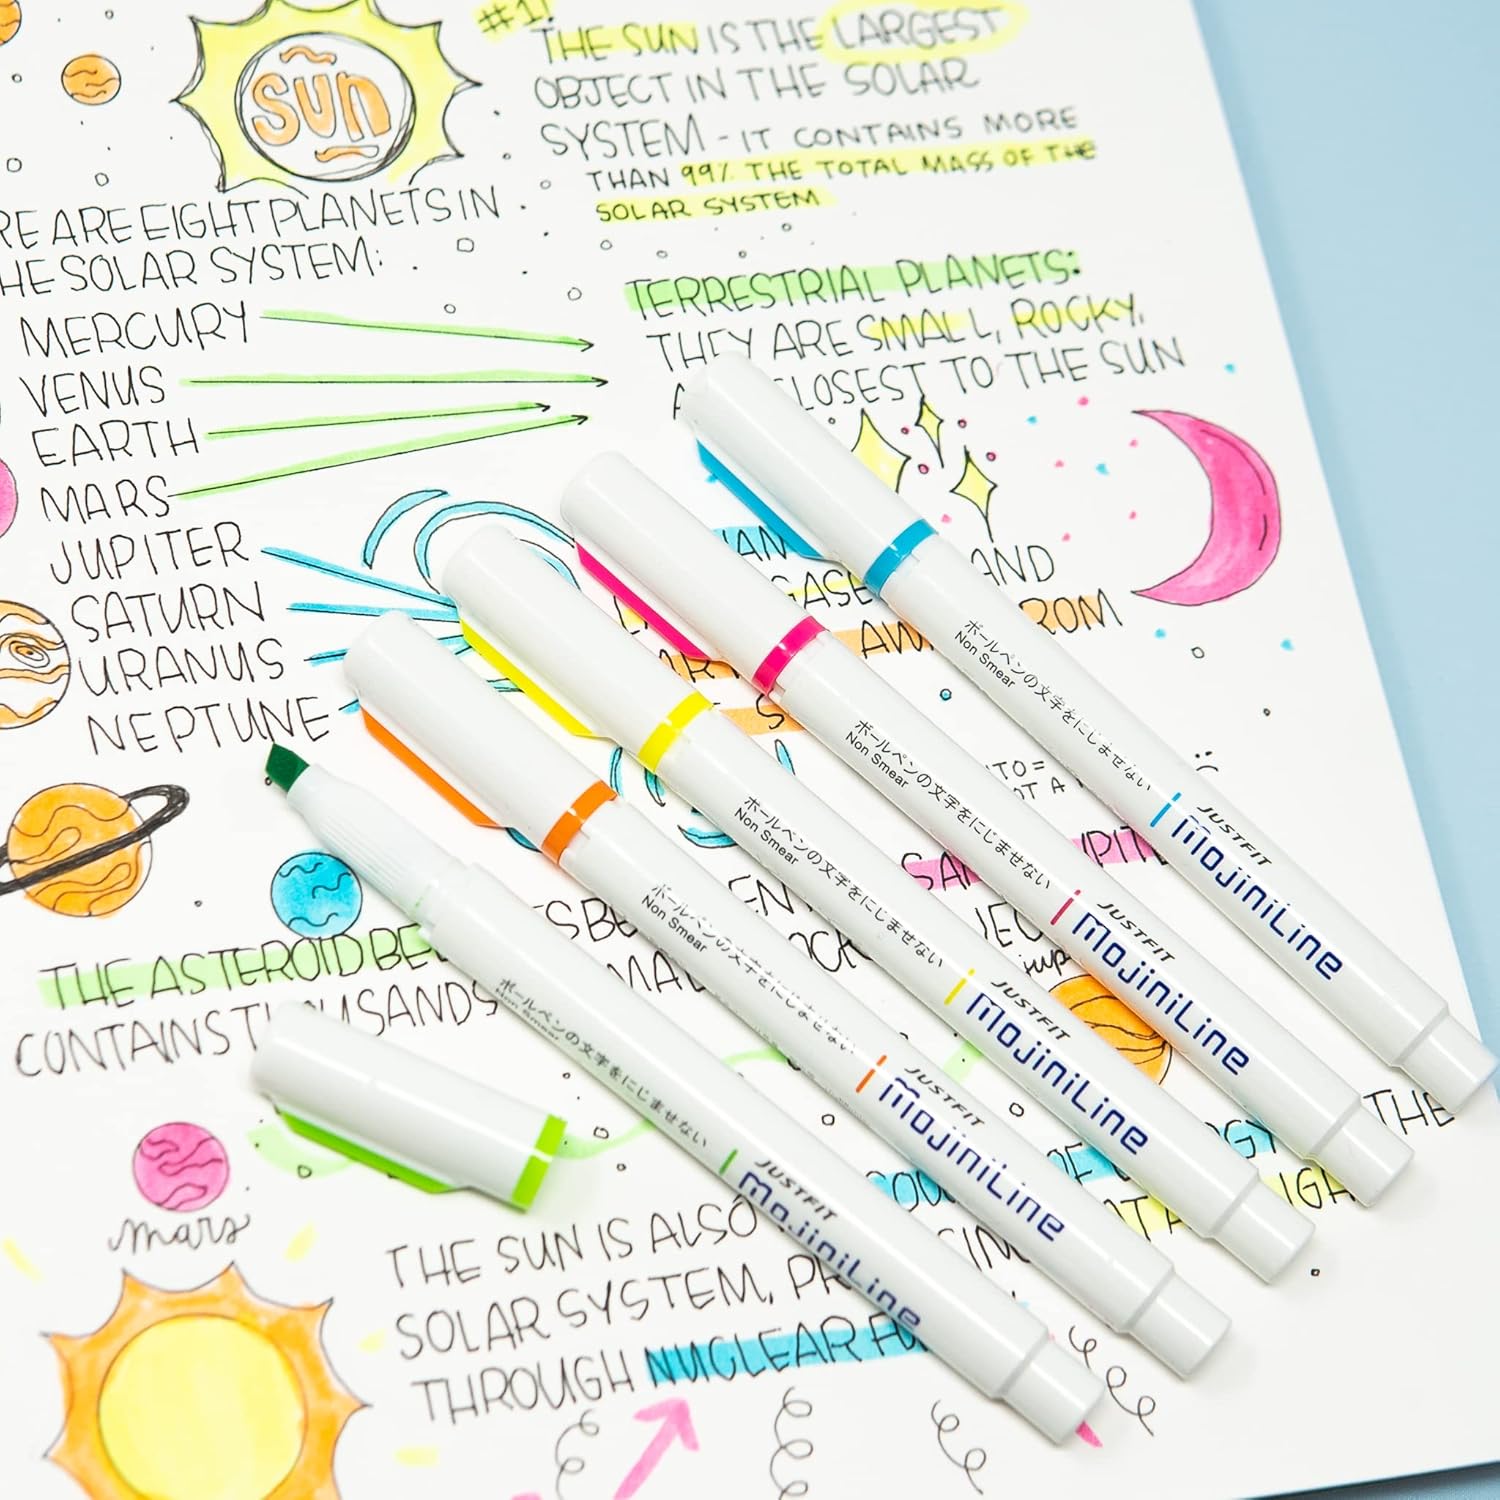 #1!
THE SUN IS THE LARGEST
OBJECT IN THE SOLAR
SYSTEM - IT CONTAINS MORE
THAN 99% THE TOTAL MASS OF THE
SOLAR SYSTEM
sun
RE ARE EIGHT PLANETS IN
HE SOLAR SYSTEM:
MERCURY
VENUS
EARTH
MARS
JUPITER
SATURN
URANUS
NEPTUNE
TERRESTRIAL PLANETS:
THEY ARE SMALL, ROCKY,
CLOSEST TO THE SUN
AND
ROM
TO =
A
THE ASTEROID BE
CONTAINS THOUSANDS
mars
THE
THE SUN IS ALSO
SOLAR SYSTEM, PR
THROUGH NUCLEAR FU
ボールペンの文字をにじませない
Non Smear
JUSTFIT
mojiniLine
ボールペンの文字をにじませない
Non Smear
JUSTFIT
mojiniLine
ボールペンの文字をにじませない
Non Smear
JUSTFIT
mojiniLine
ボールペンの文字をにじませない
Non Smear
JUSTFIT
mojiniLine
ボールペンの文字をにじませない
Non Smear
JUSTFIT
mojiniLine